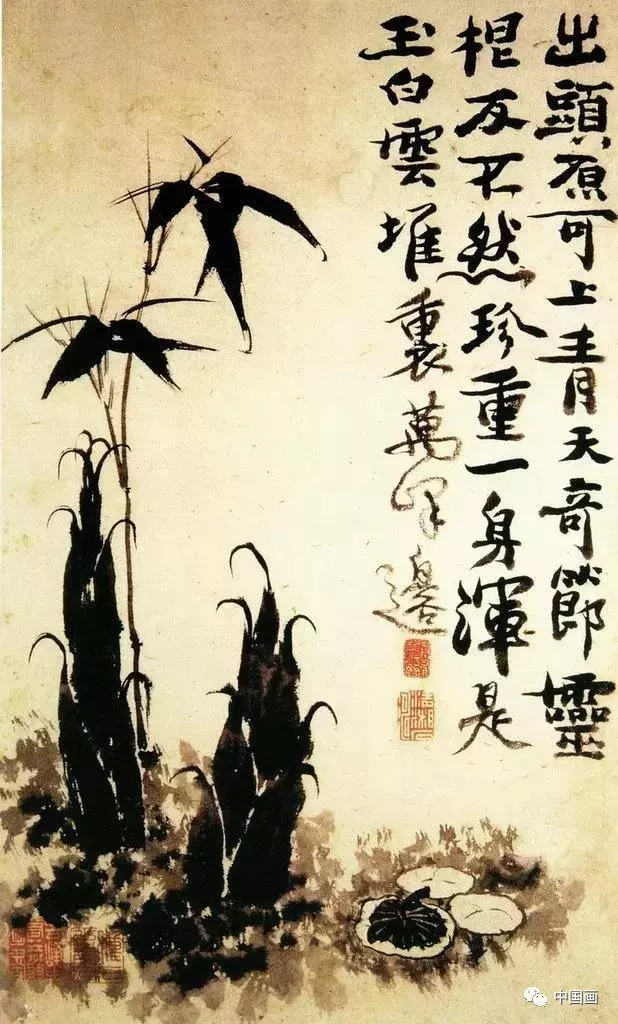 出頭原可上青天奇節靈
根反不然珍重一身渾是
玉白雲堆裏萬峰邊
中国画